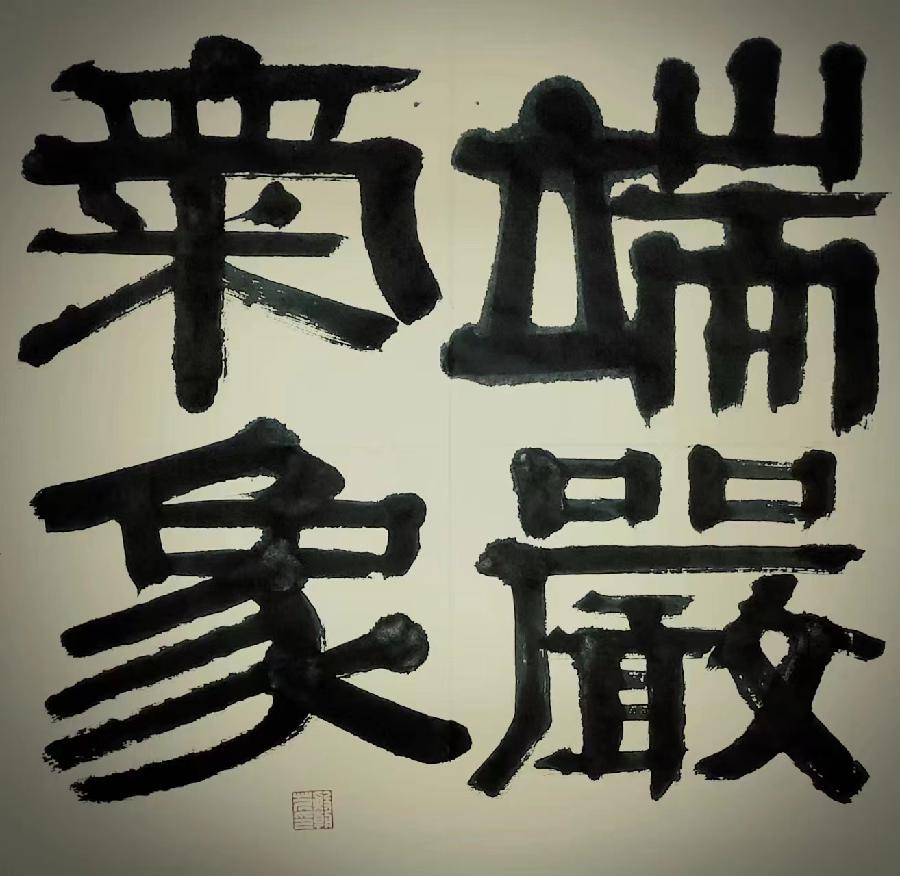 端嚴
氣象